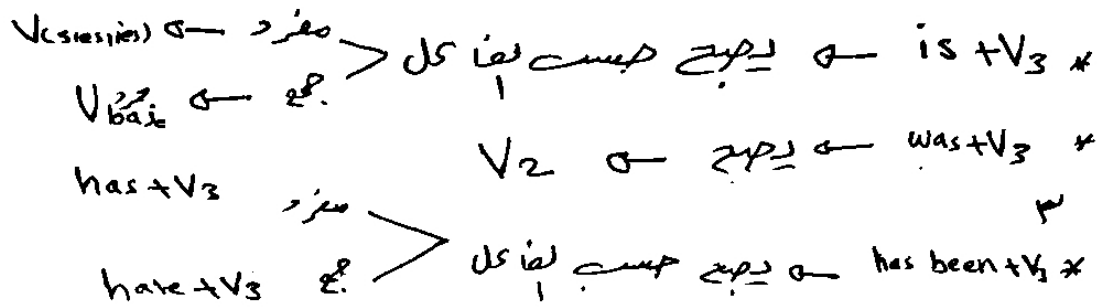 * is + V3 ← يصبح حسب الفاعل
مفرد ← V(s,es,ies)
جمع ← V base مجرد
* was + V3 ← يصبح ← V2
٣
* has been + V3 ← يصبح حسب الفاعل
مفرد has + V3
جمع have + V3